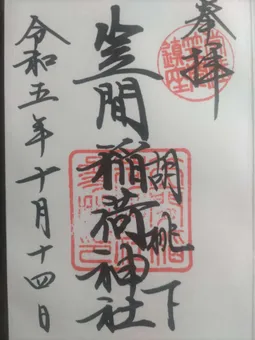 奉拝
胡桃下
笠間稲荷神社
令和五年十月十四日